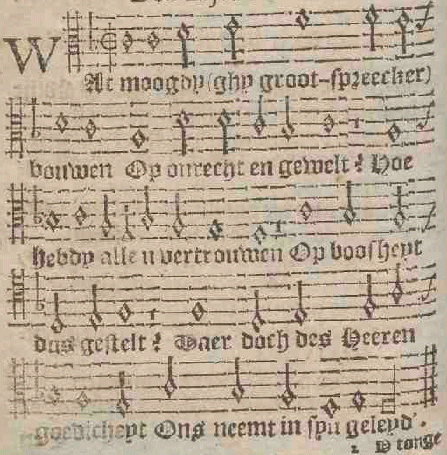 WAt moogdy (ghy groot-spreecker)
bouwen Op onrecht en gewelt? Hoe
hebdy alle u vertrouwen Op boosheyt
dus gestelt? Waer doch des Heeren
goedicheyt Ons neemt in syn geleyd'.
2 D tonge